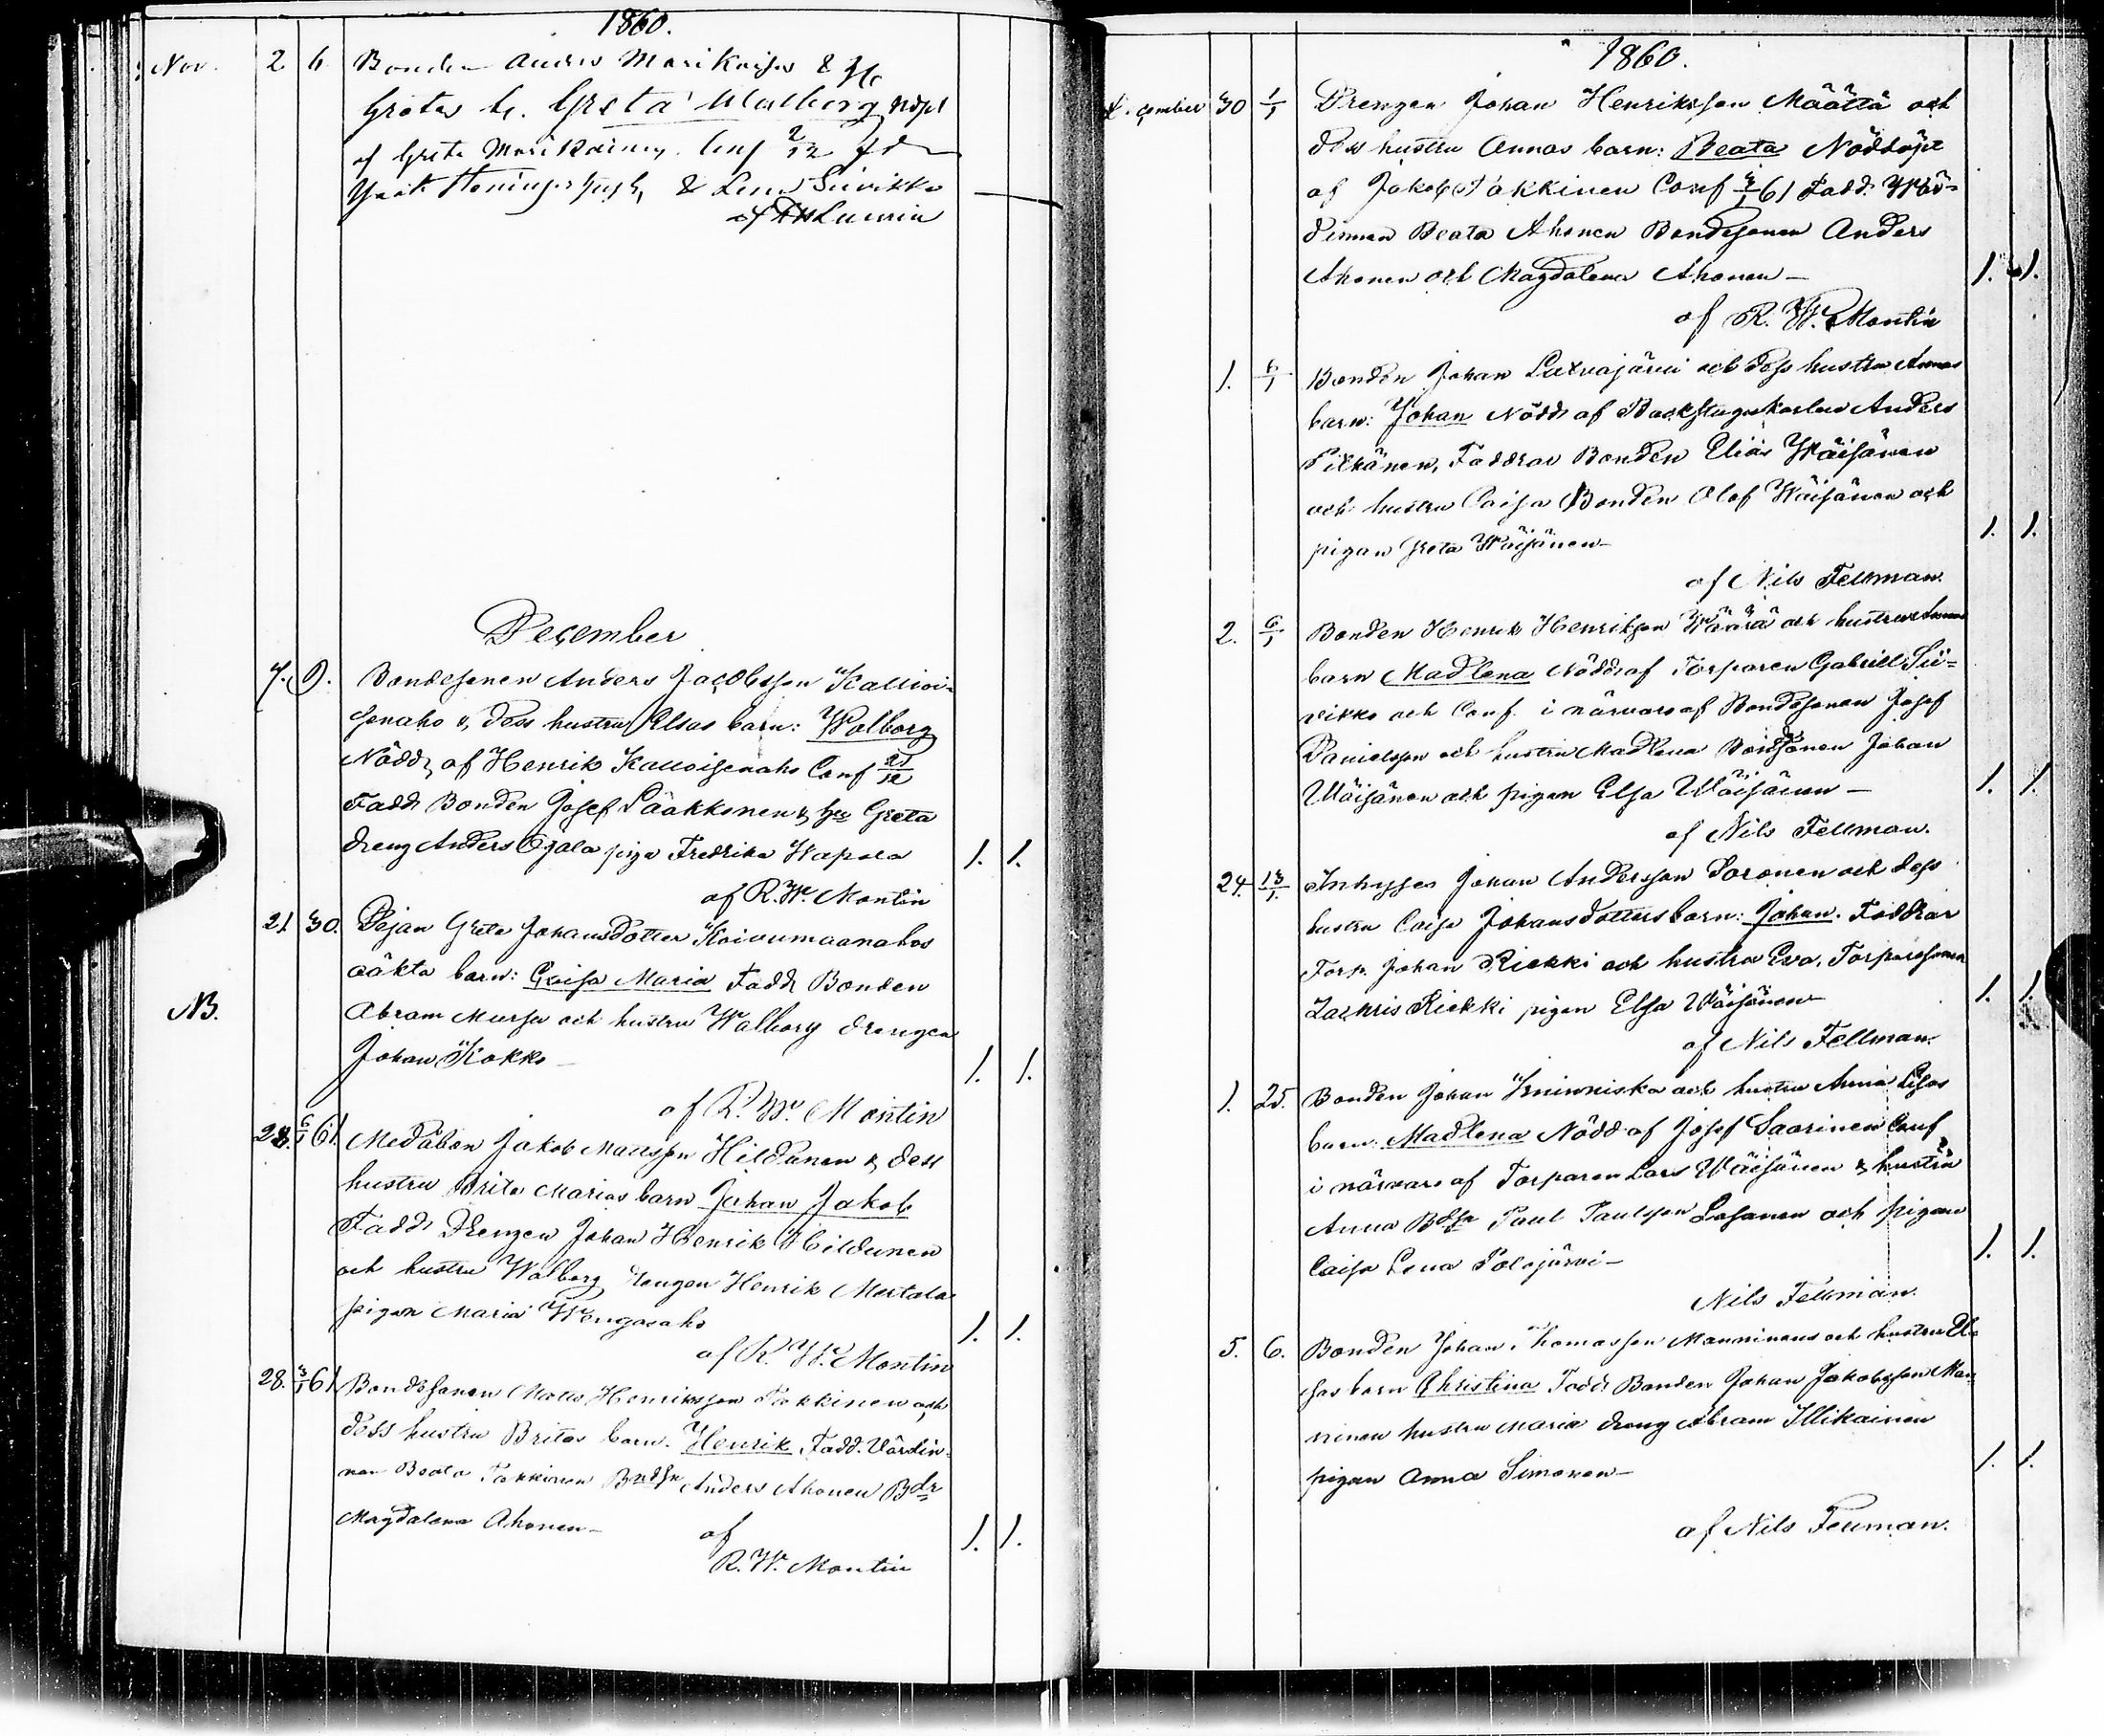 1860.
Nov. 2 6 Bonden Anders Marikaises & Hu
Gretas b. Greta Walborg nöpt
af Greta Conf 2/12 fdr
& Lena Siivikko
af Lucria
December
7. 9. Bondesonen Anders Jacobsson Kallioi-
senaho & dess hustru Elsas barn: Walborg
Nödd. af Henrik Kalloisenaho Conf 25/12
Fadd Bonden Josef Pääkkönen & hu Greta
dreng Anders Ojala piga Fredrika Wapola 1. 1.
af R. W. Montin
21 30. Pigan Greta Johansdotter Koivumaanahos
oäkta barn: Caisa Maria Fadd. Bonden
NB. Abram Mursu och hustru Walborg drengen
Johan Kokko 1. 1.
af R. W. Montin
28. 6/1 61. Medåbon Jakob Mattsson Hildunen & dess
hustru Brita Marias barn Johan Jakob
Fadd. Drengen Johan Henrik Hildunen
och hustru Walborg drengen Henrik Mertala
pigan Maria Wengasaho 1. 1.
af R. W. Montin
28. 3/1 61. Bondesonen Matts Henriksson Takkinen och
dess hustru Britas barn. Henrik. Fadd. Värdin-
nan Beata Takkinen Bndsn Anders Ahonen Bdr
Magdalena Ahonen 1. 1.
af
R. W. Montin
1860.
December 30 1/1 Drengen Johan Henriksson Määttä och
dess hustru Annas barn: Beata Nöddöpt
af Jakob Takkinen Conf 3/1 61 Fadd. Wär-
dinnan Beata Ahonen Bondesonen Anders
Ahonen och Magdalena Ahonen 1. 1.
af R. W. Montin
1. 6/1 Bonden Johan Latvajärvi och dess hustru Annas
barn: Johan Nödd. af Backstugukarlen Anders
Pitkänen, Faddrar Bonden Elias Wäisänen
och hustru Caisa Bonden Olof Wäisänen och
pigan Greta Wäisänen 1. 1.
af Nils Fellman.
2. 6/1 Bonden Henrik Henriksson Wäärä och hustru Annas
barn Madlena Nödd. af Torparen Gabriell Sii-
vikko och Conf. i närvaro af Bondesonen Josef
Danielsson och hustru Madlena Bondsonen Johan
Wäisänen och pigan Elsa Wäisänen 1. 1.
af Nils Fellman.
24. 13/1. Inhyses Johan Andersson Soronen och dess
hustru Caisa Johansdotters barn: Johan. Faddrar
Torp. Johan Riekki och hustru Eva. Torparesonen
Zachris Riekki pigan Elsa Wäisänen 1. 1.
af Nils Fellman.
1. 25. Bonden Johan Kniivniska och hustru Anna Lisas
barn. Madlena Nödd. af Josef Saarinen Conf
i närvaro af Torparen Lars Wäisänen & hustru
Anna Bdsn Paul Paulsson Lasanen och pigan
Caisa Lena Polojärvi 1. 1.
Nils Fellman.
5. 6. Bonden Johan Thomasson Manninens och hustru El-
sas barn Christina Fadd. Bonden Johan Jakobsson Man-
ninen hustru Maria dreng Abram Illikainen
pigan Anna Simonen 1. 1.
af Nils Fellman.